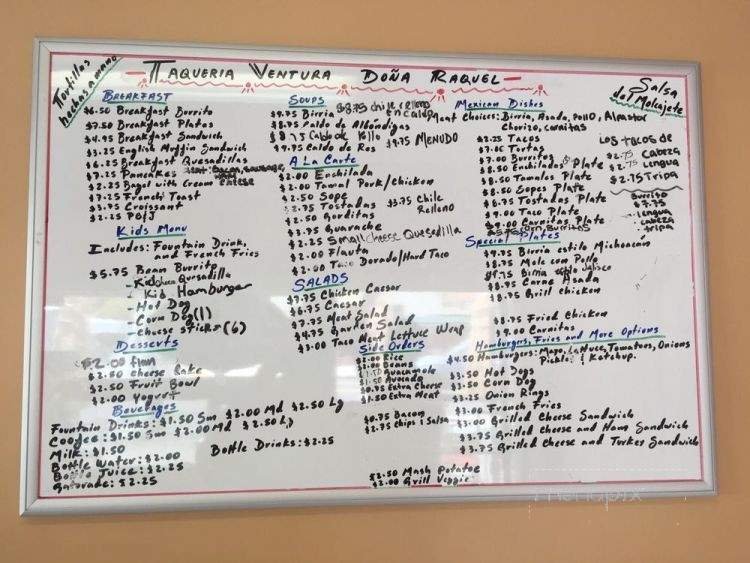 Tortillas
hechas a mano
Taqueria Ventura Doña Raquel
Salsa
del Molcajete
Breakfast
$6.50 Breakfast Burrito
$7.50 Breakfast Platos
$4.95 Breakfast Sandwich
$3.25 English Muffin Sandwich
$6.25 Breakfast Quesadillas
$7.25 Pancakes Meat: Bacon, Sausage,
$2.25 Bagel with Cream Cheese
$7.25 French Toast
$3.75 Croissant
$2.25 PB&J
Kids Menu
Includes: Fountain Drink,
and French Fries
$5.75 Bean Burrito
- Kid Cheese Quesadilla
- Kid Hamburger
- Hot Dog
- Corn Dog (1)
- Cheese Sticks (6)
Desserts
$2.00 Flan
$2.50 Cheese Cake
$2.50 Fruit Bowl
$2.00 Yogurt
Beverages
Fountain Drinks: $1.50 Sm $2.00 Md $2.50 Lg
Coogee: $1.50 Sm $2.00 Md $2.50 Lg
Milk: $1.50
Bottle Water: $2.00
Bottle Juice: $2.25
Gatorade: $2.25
Bottle Drinks: $2.25
Soups
$8.75 Chile Relleno
en Caldo
$9.75 Birria
$8.75 Caldo de Albondigas
$8.75 Caldo de Pollo
$9.75 Caldo de Res
$9.75 MENUDO
A La Carte
$2.00 Enchilada
$2.00 Tamal Pork/Chicken
$2.50 Sope
$2.75 Tostadas
$3.75 Chile
Relleno
$2.50 Gorditas
$3.75 Guarache
$2.25 Small Cheese Quesadilla
$2.00 Flauta
$2.00 Taco Dorado/Hard Taco
SALADS
$7.75 Chicken Caesar
$6.75 Caesar
$7.75 Meat Salad
$4.75 Garden Salad
$3.00 Taco Meat Lettuce Wrap
Side Orders
$2.00 Rice
$2.00 Beans
$1.50 Guacamole
$1.50 Avocado
$0.75 Extra Cheese
$1.50 Extra Meat
$0.75 Bacon
$2.75 Chips & Salsa
$2.50 Mash Potatoe
$2.00 Grill Veggie
Mexican Dishes
Meat Choices: Birria, Asada, Pollo, Alpastor
Chorizo, Carnitas
$2.25 Tacos
$7.00 Tortas
$7.00 Burritos
$8.50 Enchiladas Plate
$8.50 Tamales Plate
$8.50 Sopes Plate
$8.75 Tostadas Plate
$9.00 Taco Plate
$9.00 Carnitas Plate
Burritos
LOS TACOS DE
$2.75 Cabeza
$2.75 Lengua
$2.75 Tripa
Burrito
$7.75
Lengua
Cabeza
Tripa
Special Plates
$9.75 Birria estilo Michoacan
$8.75 Mole con Pollo
$9.75 Birria estilo Jalisco
$8.75 Carne Asada
$8.75 Grill Chicken
$8.75 Fried Chicken
$9.00 Carnitas
Hamburgers, Fries and More Options
$4.50 Hamburgers: Mayo, Lettuce, Tomatoes, Onions
Pickles & Ketchup.
$3.50 Hot Dogs
$3.50 Corn Dog
$3.25 Onion Rings
$3.00 French Fries
$3.00 Grilled Cheese Sandwich
$3.75 Grilled Cheese and Ham Sandwich
$3.75 Grilled Cheese and Turkey Sandwich
Menupix